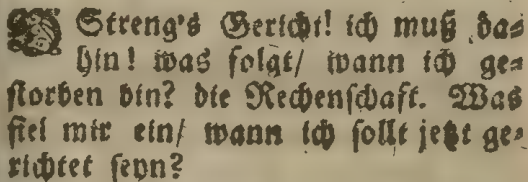 O Streng's Gericht! ich muß da⸗
hin! was folgt/ wann ich ge⸗
storben bin? die Rechenschaft. Was
fiel mir ein/ wann ich sollt jetzt ge⸗
richtet seyn?